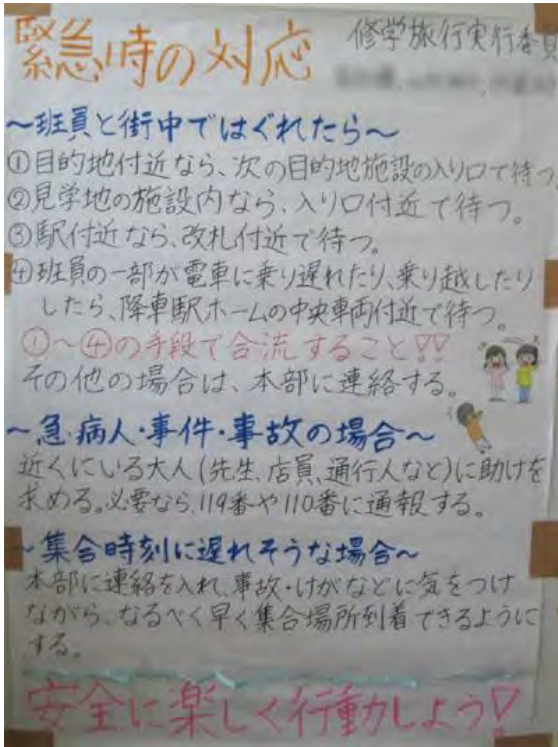 緊急時の対応
修学旅行実行委員
～班員と街中ではぐれたら～
①目的地付近なら、次の目的地施設の入り口で待つ
②見学地の施設内なら、入り口付近で待つ。
③駅付近なら、改札付近で待つ。
④班員の一部が電車に乗り遅れたり、乗り越したり
したら、降車駅ホームの中央車両付近で待つ。
①～④の手段で合流すること!!
その他の場合は、本部に連絡する。
～急病人・事件・事故の場合～
近くにいる大人(先生、店員、通行人など)に助けを
求める。必要なら、119番や110番に通報する。
～集合時刻に遅れそうな場合～
本部に連絡を入れ、事故・けがなどに気をつけ
ながら、なるべく早く集合場所到着できるように
する。
安全に楽しく行動しよう!